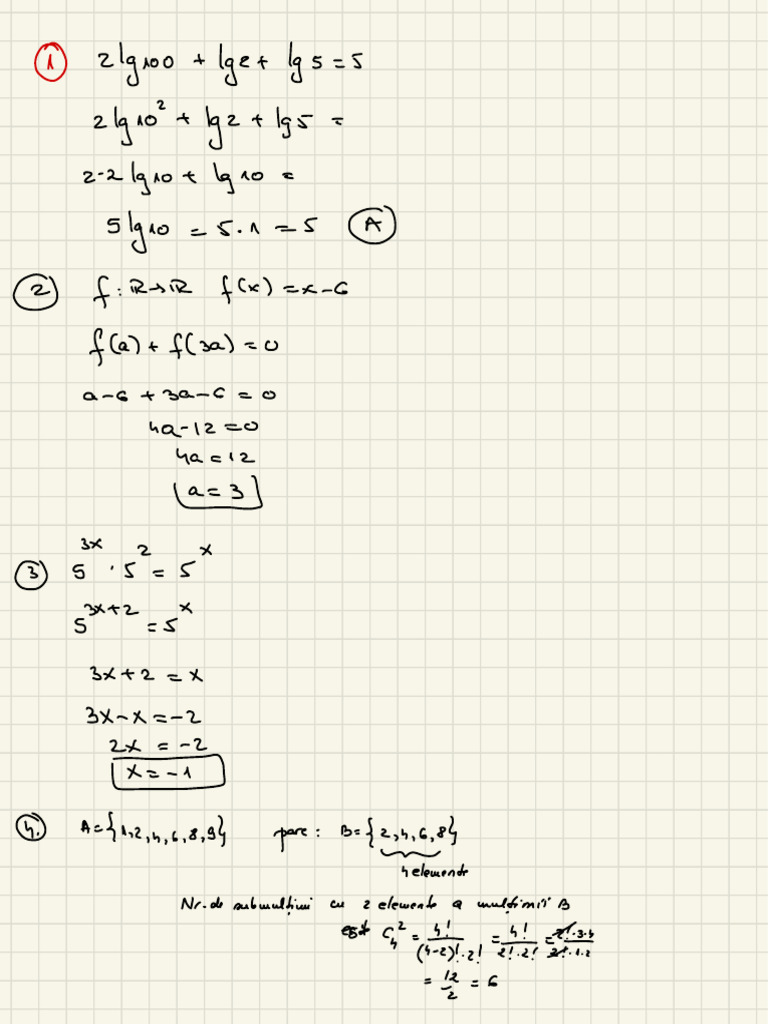 1 2 lg 100 + lg 2 + lg 5 = 5
2 lg 10² + lg 2 + lg 5 =
2·2 lg 10 + lg 10 =
5 lg 10 = 5·1 = 5 A
2 f : ℝ→ℝ f(x) = x-6
f(a) + f(3a) = 0
a-6 + 3a-6 = 0
4a-12 = 0
4a = 12
a = 3
3 5^{3x} · 5^2 = 5^x
5^{3x+2} = 5^x
3x+2 = x
3x-x = -2
2x = -2
x = -1
4. A = {1,2,4,6,8,9} pare : B = {2,4,6,8}
4 elemente
Nr. de submulțimi cu 2 elemente a mulțimii B
este C_4^2 = 4!/((4-2)!·2!) = 4!/(2!·2!) = 2!·3·4/(2!·1·2)
= 12/2 = 6